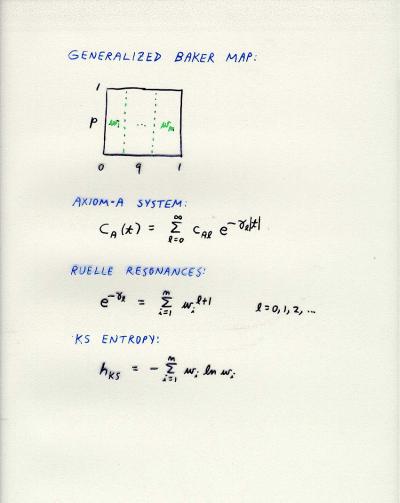 GENERALIZED BAKER MAP:
1
p w₁ ... wₘ
0 q 1
AXIOM-A SYSTEM:
C_A(t) = Σ_{l=0}^{∞} c_{Al} e^{-γ_l|t|}
RUELLE RESONANCES:
e^{-γ_l} = Σ_{i=1}^{m} w_i^{l+1} l=0,1,2,...
KS ENTROPY:
h_{KS} = - Σ_{i=1}^{m} w_i ln w_i